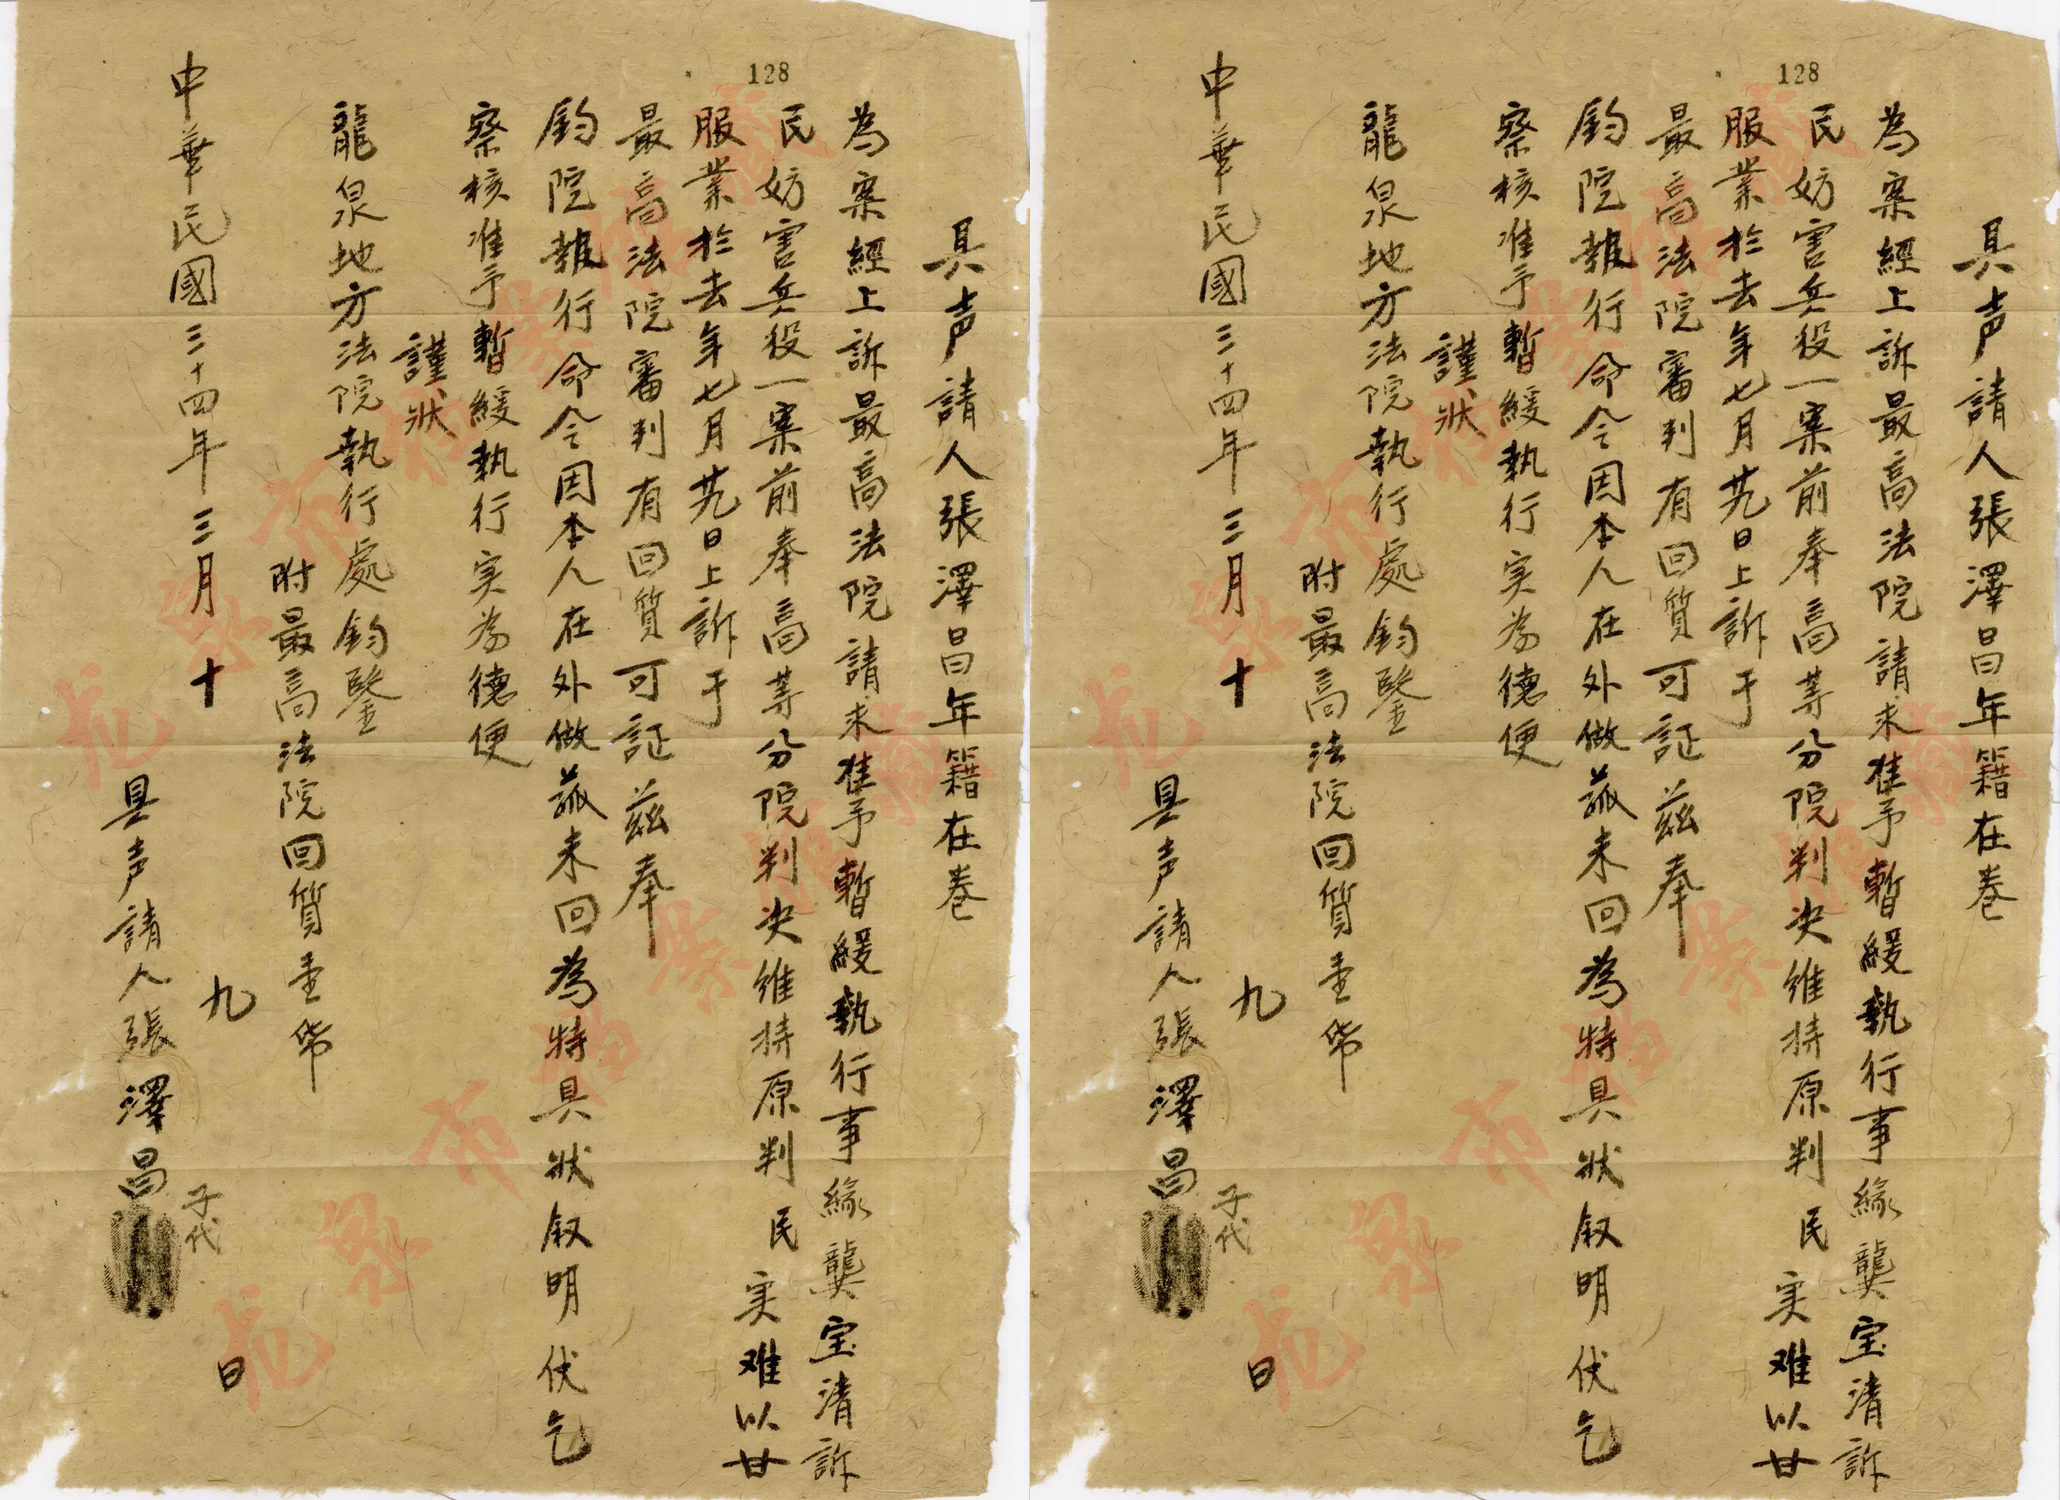 128
具声請人張澤昌年籍在卷
為案經上訴最高法院請求准予暫緩執行事緣龔宝清訴
民妨害兵役一案前奉高等分院判决維持原判民实难以甘
服業於去年七月廿九日上訴于
最高法院審判有回質可証茲奉
鈞院報行命令因本人在外做菰未回為特具狀叙明伏乞
察核准予暫緩執行实為德便
謹狀
龍泉地方法院執行處鈞鑒
附最高法院回質壹帋
中華民國三十四年三月十九日
具声請人張澤昌
子代
龙泉市档案馆馆藏
龙泉市档案馆馆藏
128
具声請人張澤昌年籍在卷
為案經上訴最高法院請求准予暫緩執行事緣龔宝清訴
民妨害兵役一案前奉高等分院判决維持原判民实难以甘
服業於去年七月廿九日上訴于
最高法院審判有回質可証茲奉
鈞院報行命令因本人在外做菰未回為特具狀叙明伏乞
察核准予暫緩執行实為德便
謹狀
龍泉地方法院執行處鈞鑒
附最高法院回質壹帋
中華民國三十四年三月十九日
具声請人張澤昌
子代
龙泉市档案馆馆藏
龙泉市档案馆馆藏